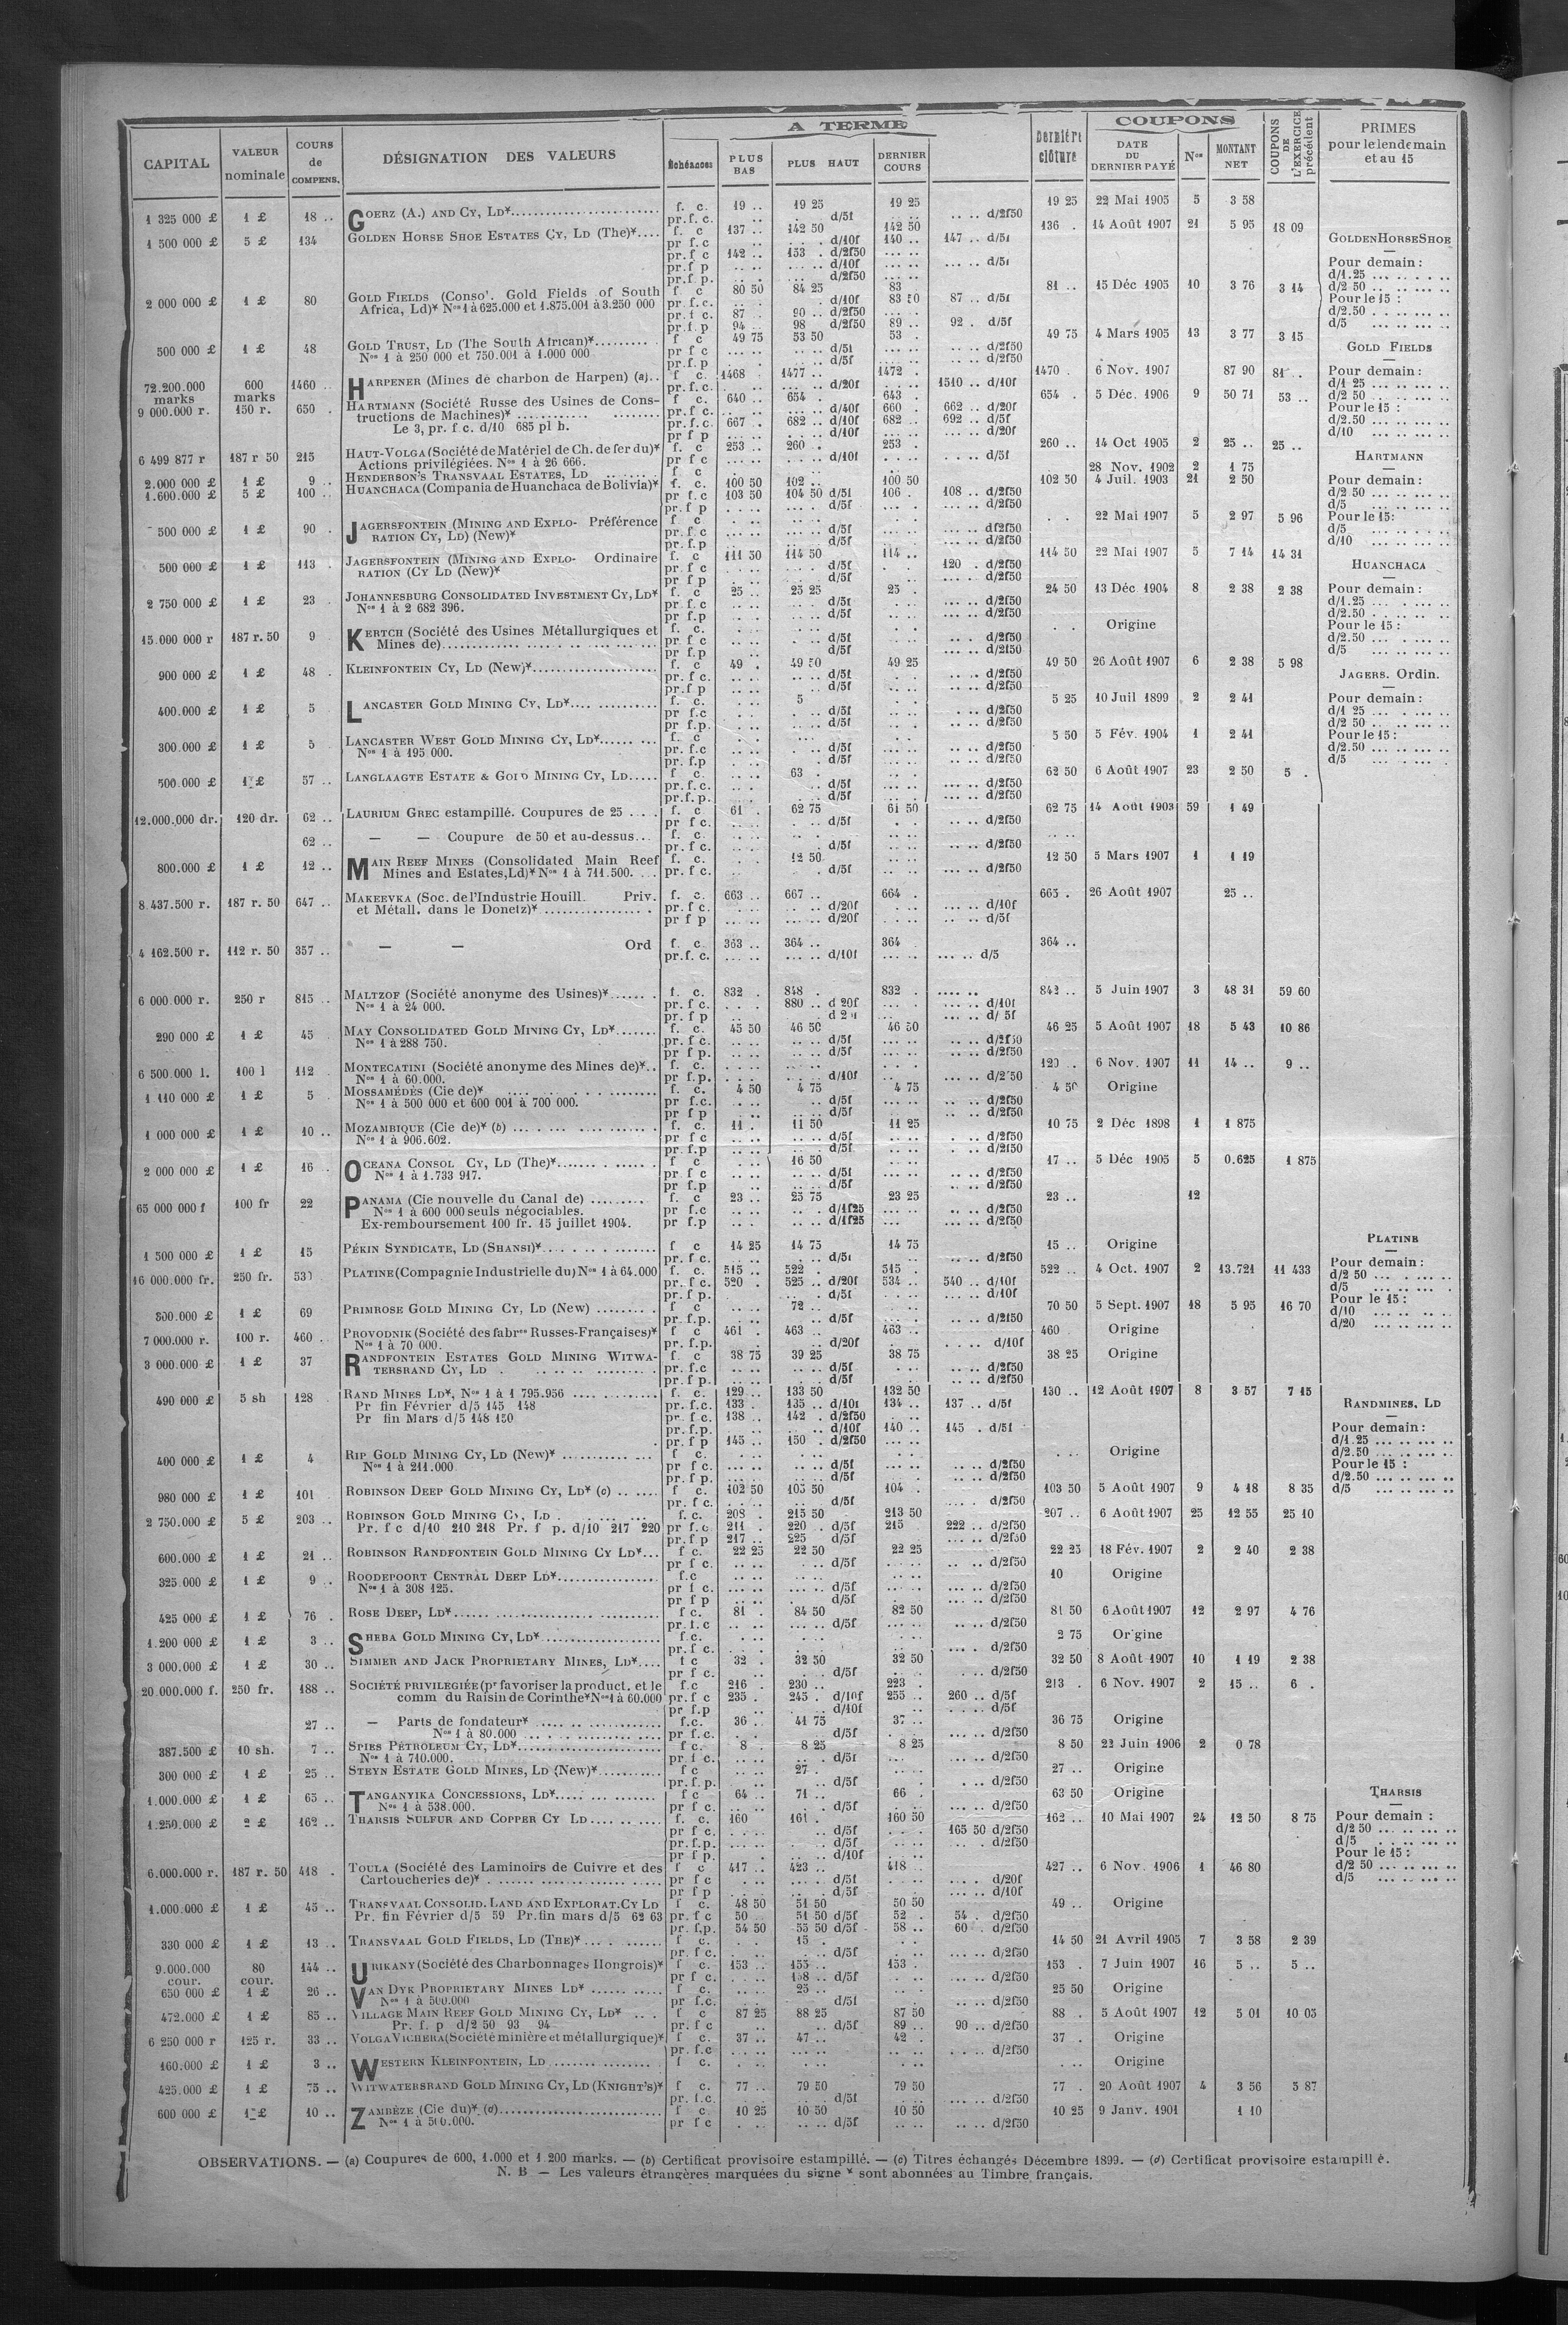 CAPITAL | VALEUR nominale | COURS de COMPENS. | DÉSIGNATION DES VALEURS | A TERME | Échéances | PLUS BAS | PLUS HAUT | DERNIER COURS | Dernière clôture | COUPONS | DATE DU DERNIER PAYÉ | Nos | MONTANT NET | COUPONS DE L'EXERCICE précédent | PRIMES pour le lendemain et au 15
1 325 000 £ 1 £ 18 .. GOERZ (A.) AND CY, LD* f. c. 19 .. 19 25 19 25 19 25 22 Mai 1905 5 3 58
pr. f. c. d/5f d/2f50
1 500 000 £ 5 £ 134 GOLDEN HORSE SHOE ESTATES CY, LD (The)* f. c 137 .. 142 50 142 50 136 . 14 Août 1907 21 5 95 18 09
pr f. c d/10f 140 .. 147 .. d/5f
pr. f c 142 .. 153 . d/2f50
pr. f p d/10f d/5f
pr. f. p. d/2f50
2 000 000 £ 1 £ 80 GOLD FIELDS (Consol. Gold Fields of South f. c 80 50 84 25 83 81 .. 15 Déc 1905 10 3 76 3 14
Africa, Ld)* Nos 1 à 625.000 et 1.875.001 à 3.250 000 pr. f. c. d/10f 83 50 87 .. d/5f
pr. f c. 87 . 90 .. d/2f50
pr. f. p 94 .. 98 d/2f50 89 .. 92 . d/5f
500 000 £ 1 £ 48 GOLD TRUST, LD (The South African)* f c 49 75 53 50 53 . 49 75 4 Mars 1905 13 3 77 3 15
Nos 1 à 250 000 et 750.001 à 1.000 000 pr f c d/5f d/2f50
pr. f. p d/5f d/2f50
72.200.000 marks 600 marks 1460 .. HARPENER (Mines de charbon de Harpen) (a) f c. 1468 . 1477 .. 1472 . 1470 . 6 Nov. 1907 87 90 81 ..
pr. f. c. d/20f 1510 .. d/10f
9 000.000 r. 150 r. 650 . HARTMANN (Société Russe des Usines de Cons- f. c. 640 .. 654 . 643 . 654 . 5 Déc. 1906 9 50 71 53 ..
tructions de Machines)* pr. f c. d/40f 660 . 662 .. d/20f
Le 3, pr. f c. d/10 685 pl b. pr. f. c. 667 . 682 .. d/10f 682 .. 692 .. d/5f
pr f p d/10f d/20f
6 499 877 r 187 r 50 215 HAUT-VOLGA (Société de Matériel de Ch. de fer du)* f. c 253 .. 260 . 253 . 260 .. 14 Oct 1905 2 25 .. 25 ..
Actions privilégiées. Nos 1 à 26 666. pr f c d/10f d/5f
2.000 000 £ 1 £ 9 .. HENDERSON'S TRANSVAAL ESTATES, LD f c 28 Nov. 1902 2 1 75
1.600.000 £ 5 £ 100 .. HUANCHACA (Compania de Huanchaca de Bolivia)* f. c. 100 50 102 .. 100 50 102 50 4 Juil. 1903 21 2 50
pr f. c 103 50 104 50 d/5f 106 . 108 .. d/2f50
pr. f p d/5f d/2f50
500 000 £ 1 £ 90 . JAGERSFONTEIN (MINING AND EXPLO- Préférence f c 22 Mai 1907 5 2 97 5 96
RATION CY, LD) (New)* pr. f c d/5f d/2f50
pr. f. p d/5f d/2f50
500 000 £ 1 £ 113 . JAGERSFONTEIN (MINING AND EXPLO- Ordinaire f. c 111 50 114 50 114 .. 114 50 22 Mai 1907 5 7 14 14 31
RATION (CY LD (New)* pr f c d/5f 120 . d/2f50
pr f p d/5f d/2f50
2 750 000 £ 1 £ 23 . JOHANNESBURG CONSOLIDATED INVESTMENT CY, LD* f. c 25 .. 25 25 25 . 24 50 13 Déc 1904 8 2 38 2 38
Nos 1 à 2 682 396. pr. f. c d/5f d/2f50
pr. f. p d/5f d/2f50
15.000 000 r 187 r. 50 9 KERTCH (Société des Usines Métallurgiques et f. c. Origine
Mines de) pr. f c d/5f d/2f50
pr. f. p d/5f d/2f50
900 000 £ 1 £ 48 . KLEINFONTEIN CY, LD (New)* f. c 49 . 49 50 49 25 49 50 26 Août 1907 6 2 38 5 98
pr. f c. d/5f d/2f50
pr. f p d/5f d/2f50
400.000 £ 1 £ 5 LANCASTER GOLD MINING CY, LD* f. c. 5 5 25 10 Juil 1899 2 2 41
pr f. c d/5f d/2f50
pr f. p. d/5f d/2f50
300.000 £ 1 £ 5 LANCASTER WEST GOLD MINING CY, LD* f. c 5 50 5 Fév. 1904 1 2 41
Nos 1 à 195 000. pr. f. c d/5f d/2f50
pr. f. p d/5f d/2f50
500.000 £ 1 £ 57 .. LANGLAAGTE ESTATE & GOLD MINING CY, LD f c. 63 . 62 50 6 Août 1907 23 2 50 5 .
pr. f. c. d/5f d/2f50
pr. f. p. d/5f d/2f50
12.000.000 dr. 120 dr. 62 .. LAURIUM GREC estampillé. Coupures de 25 f. c 61 . 62 75 61 50 62 75 14 Août 1903 59 1 49
pr f c. d/5f d/2f50
62 .. — — Coupure de 50 et au-dessus f. c
pr. f c. d/5f d/2f50
800.000 £ 1 £ 12 .. MAIN REEF MINES (Consolidated Main Reef f. c. 12 50 12 50 5 Mars 1907 1 1 19
Mines and Estates, Ld)* Nos 1 à 711.500. pr. f c. d/5f d/2f50
8.437.500 r. 187 r. 50 647 .. MAKEEVKA (Soc. de l'Industrie Houill. Priv. f. c. 663 .. 667 .. 664 . 665 . 26 Août 1907 25 ..
et Métall. dans le Donetz)* pr. f c. d/20f d/10f
pr f p d/20f d/5f
4 162.500 r. 112 r. 50 357 .. — — Ord f. c 363 .. 364 .. 364 364 ..
pr. f. c. d/10f d/5
6 000.000 r. 250 r 815 .. MALTZOF (Société anonyme des Usines)* f. c. 832 . 848 . 832 . 842 .. 5 Juin 1907 3 48 31 59 60
Nos 1 à 24 000. pr. f c. 880 .. d 20f d/10f
pr f p d/ 5f
290 000 £ 1 £ 45 MAY CONSOLIDATED GOLD MINING CY, LD* f. c. 45 50 46 50 46 50 46 25 5 Août 1907 18 5 43 10 86
Nos 1 à 288 750. pr. f c. d/5f d/2f50
pr f p. d/5f d/2f50
6 500 000 l. 100 l 112 MONTECATINI (Société anonyme des Mines de)* f. c. 120 . 6 Nov. 1907 11 14 .. 9 ..
Nos 1 à 60.000. pr f. p. d/10f d/2 50
1 110 000 £ 1 £ 5 MOSSAMÉDÈS (Cie de)* f. c. 4 50 4 75 4 75 4 50 Origine
Nos 1 à 500 000 et 600 001 à 700 000. pr f. c. d/5f d/2f50
pr f p d/5f d/2f50
1 000 000 £ 1 £ 10 .. MOZAMBIQUE (Cie de)* (b) f. c. 11 . 11 50 11 25 10 75 2 Déc 1898 1 1 875
Nos 1 à 906.602. pr f c d/5f d/2f50
pr. f. p d/5f d/2f50
2 000 000 £ 1 £ 16 OCEANA CONSOL CY, LD (The)* f c 16 50 17 .. 5 Déc 1905 5 0.625 1 875
Nos 1 à 1.733 917. pr f c d/5f d/2f50
pr f. p d/5f d/2f50
65 000 000 f 100 fr 22 PANAMA (Cie nouvelle du Canal de) f. c 23 .. 23 75 23 25 23 .. 12
Nos 1 à 600 000 seuls négociables. pr f. c d/1f25 d/2f50
Ex-remboursement 100 fr. 15 juillet 1904. pr f. p d/1f25 d/2f50
1 500 000 £ 1 £ 15 PÉKIN SYNDICATE, LD (SHANSI)* f c 14 25 14 75 14 75 15 .. Origine
pr. f c. d/5f d/2f50
16 000.000 fr. 250 fr. 530 PLATINE (Compagnie Industrielle du) Nos 1 à 64.000 f. c. 515 .. 522 . 515 . 522 .. 4 Oct. 1907 2 13.721 11 433
pr. f c. 520 . 525 .. d/20f 534 .. 540 .. d/10f
pr. f p. d/5f d/10f
300.000 £ 1 £ 69 PRIMROSE GOLD MINING CY, LD (New) f c 72 .. 70 50 5 Sept. 1907 18 5 95 16 70
pr. f. p. d/5f d/2f50
7 000.000 r. 100 r. 460 . PROVODNIK (Société des fabres Russes-Françaises)* f c 461 . 463 .. 463 .. 460 Origine
Nos 1 à 70 000. pr. f. p. d/20f d/10f
3 000.000 £ 1 £ 37 RANDFONTEIN ESTATES GOLD MINING WITWA- f. c 38 75 39 25 38 75 38 25 Origine
TERSRAND CY, LD pr. f. c d/5f d/2f50
pr. f p. d/5f d/2f50
490 000 £ 5 sh 128 RAND MINES LD*, Nos 1 à 1 795.956 f. c. 129 .. 133 50 132 50 130 .. 12 Août 1907 8 3 57 7 15
Pr fin Février d/5 145 148 pr. f. c. 133 . 135 .. d/10f 134 .. 137 .. d/5f
Pr fin Mars d/5 148 150 pr. f c. 138 .. 142 . d/2f50
pr. f. p. d/10f 140 .. 145 . d/5f
pr. f p 145 .. 150 . d/2f50
400 000 £ 1 £ 4 RIP GOLD MINING CY, LD (New)* f c. Origine
Nos 1 à 211.000 pr f c. d/5f d/2f50
pr. f p. d/5f d/2f50
980 000 £ 1 £ 101 ROBINSON DEEP GOLD MINING CY, LD* (c) f c. 102 50 105 50 104 . 103 50 5 Août 1907 9 4 18 8 35
pr. f c. d/5f d/2f50
2 750.000 £ 5 £ 203 .. ROBINSON GOLD MINING CY, LD f. c. 208 . 215 50 213 50 207 .. 6 Août 1907 25 12 55 25 10
Pr. f c d/10 210 218 Pr. f p. d/10 217 220 pr f. c. 211 . 220 . d/5f 215 222 .. d/2f50
pr. f p 217 .. 225 d/5f d/2f50
600.000 £ 1 £ 21 .. ROBINSON RANDFONTEIN GOLD MINING CY LD* f c. 22 25 22 50 22 25 22 25 18 Fév. 1907 2 2 40 2 38
pr f c. d/5f d/2f50
325.000 £ 1 £ 9 .. ROODEPOORT CENTRAL DEEP LD* f. c 10 Origine
Nos 1 à 308 125. pr f c. d/5f d/2f50
pr f p d/5f d/2f50
425 000 £ 1 £ 76 . ROSE DEEP, LD* f c. 81 . 84 50 82 50 81 50 6 Août 1907 12 2 97 4 76
pr. f. c d/5f d/2f50
1.200 000 £ 1 £ 3 .. SHEBA GOLD MINING CY, LD* f. c. 2 75 Origine
pr. f c. d/2f50
3 000.000 £ 1 £ 30 .. SIMMER AND JACK PROPRIETARY MINES, LD* f c 32 . 32 50 32 50 32 50 8 Août 1907 10 1 19 2 38
pr f c. d/5f d/2f50
20.000.000 f. 250 fr. 188 .. SOCIÉTÉ PRIVILEGIÉE (pr favoriser la product. et le f. c 216 . 230 .. 223 . 213 . 6 Nov. 1907 2 15 .. 6 .
comm du Raisin de Corinthe* Nos 1 à 60.000 pr. f c 235 . 245 . d/10f 255 .. 260 .. d/5f
pr. f p d/10f d/5f
27 .. — Parts de fondateur* f. c. 36 .. 41 75 37 .. 36 75 Origine
Nos 1 à 80.000 pr f c. d/5f d/2f50
387.500 £ 10 sh. 7 .. SPIES PETROLEUM CY, LD* f c. 8 . 8 25 8 25 8 50 22 Juin 1906 2 0 78
Nos 1 à 710.000. pr. f c. d/5f d/2f50
300 000 £ 1 £ 25 .. STEYN ESTATE GOLD MINES, LD (New)* f c 27 . 27 .. Origine
pr. f. p. d/5f d/2f50
1.000.000 £ 1 £ 65 .. TANGANYIKA CONCESSIONS, LD* f c 64 .. 71 .. 66 . 63 50 Origine
Nos 1 à 538.000. pr f c. d/5f d/2f50
1.250.000 £ 2 £ 162 .. THARSIS SULFUR AND COPPER CY LD f. c. 160 161 . 160 50 162 .. 10 Mai 1907 24 12 50 8 75
pr f c. d/5f 165 50 d/2f50
pr. f. p. d/5f d/2f50
pr f p. d/10f
6.000.000 r. 187 r. 50 418 . TOULA (Société des Laminoirs de Cuivre et des f c 417 .. 423 .. 418 .. 427 .. 6 Nov. 1906 1 46 80
Cartoucheries de)* pr f c d/5f d/20f
pr f p d/5f d/10f
1.000.000 £ 1 £ 45 .. TRANSVAAL CONSOLID. LAND AND EXPLORAT. CY LD f c. 48 50 51 50 50 50 49 .. Origine
Pr. fin Février d/5 59 Pr. fin mars d/5 62 63 pr. f c 50 .. 51 50 d/5f 52 . 54 . d/2f50
pr. f. p. 54 50 55 50 d/5f 58 .. 60 . d/2f50
330 000 £ 1 £ 13 .. TRANSVAAL GOLD FIELDS, LD (THE)* f c. 15 . 14 50 21 Avril 1905 7 3 58 2 39
pr. f c. d/5f d/2f50
9.000.000 cour. 80 cour. 144 .. URIKANY (Société des Charbonnages Hongrois)* f c. 153 .. 155 .. 153 . 153 . 7 Juin 1907 16 5 .. 5 ..
pr f c. 158 .. d/5f d/2f50
650 000 £ 1 £ 26 .. VAN DYK PROPRIETARY MINES LD* f c. 25 .. 25 50 Origine
Nos 1 à 500.000 pr f. c. d/5f d/2f50
472.000 £ 1 £ 85 .. VILLAGE MAIN REEF GOLD MINING CY, LD* f c 87 25 88 25 87 50 88 . 5 Août 1907 12 5 01 10 03
Pr. f. p d/2 50 93 94 pr. f c d/5f 89 .. 90 .. d/2f50
6 250 000 r 125 r. 33 .. VOLGA VICHERA (Société minière et métallurgique)* f c. 37 .. 47 .. 42 . 37 . Origine
pr. f. c d/2f50
160.000 £ 1 £ 3 .. WESTERN KLEINFONTEIN, LD f c. Origine
425.000 £ 1 £ 75 .. WITWATERSRAND GOLD MINING CY, LD (KNIGHT'S)* f c. 77 .. 79 50 79 50 77 . 20 Août 1907 4 3 56 5 87
pr. f. c. d/5f d/2f50
600 000 £ 1 £ 10 .. ZAMBÈZE (Cie du)* (d) f c. 10 25 10 50 10 50 10 25 9 Janv. 1901 1 10
Nos 1 à 500.000. pr f c d/5f d/2f50
GOLDEN HORSE SHOE
Pour demain :
d/1.25
d/2 50
Pour le 15 :
d/2.50
d/5
GOLD FIELDS
Pour demain :
d/1 25
d/2 50
Pour le 15 :
d/2.50
d/10
HARTMANN
Pour demain :
d/2 50
d/5
Pour le 15 :
d/5
d/10
HUANCHACA
Pour demain :
d/1.25
d/2.50
Pour le 15 :
d/2.50
d/5
JAGERS. Ordin.
Pour demain :
d/1 25
d/2 50
Pour le 15 :
d/2.50
d/5
PLATINE
Pour demain :
d/2 50
d/5
Pour le 15 :
d/10
d/20
RANDMINES, LD
Pour demain :
d/1.25
d/2.50
Pour le 15 :
d/2.50
d/5
THARSIS
Pour demain :
d/2 50
d/5
Pour le 15 :
d/2 50
d/5
OBSERVATIONS. — (a) Coupures de 600, 1.000 et 1 200 marks. — (b) Certificat provisoire estampillé. — (c) Titres échangés Décembre 1899. — (d) Certificat provisoire estampillé.
N. B — Les valeurs étrangères marquées du signe * sont abonnées au Timbre français.